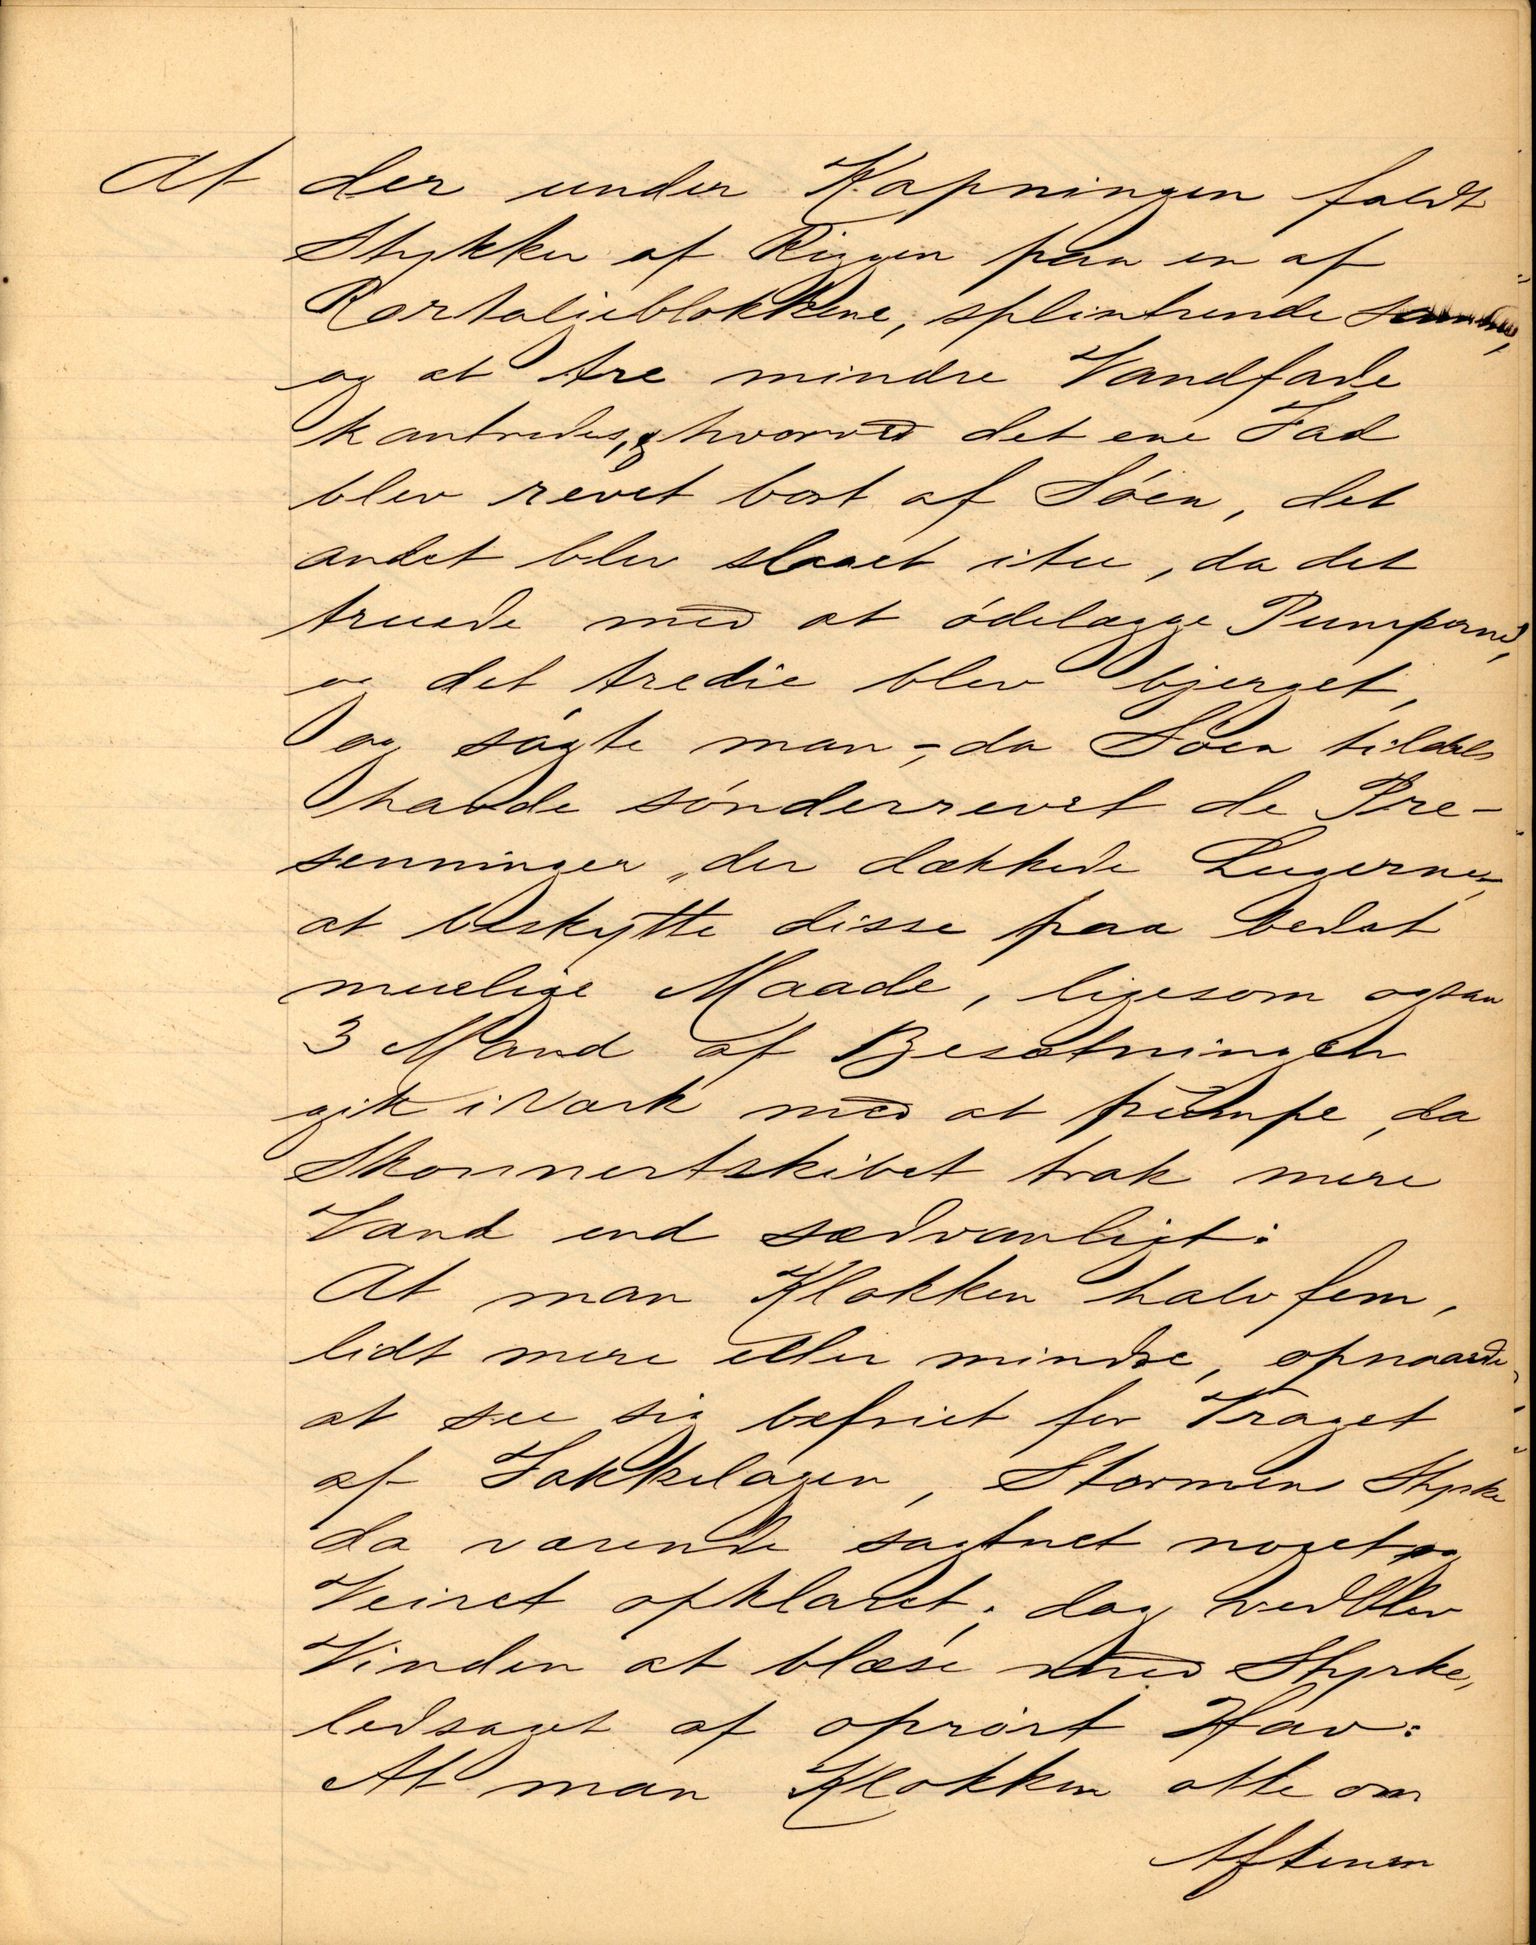 At der under Kapningen faldt
Stykker af Riggen paa en af
Rortaljeblokkene, splintrende samme,
og at tre mindre Vandfade
kantredes, hvorved det ene Fad
blev revet bort af Søen, det
andet blev slaaet itu, da det
truede med at ødelægge Pumperne,
og det tredie blev bjerget,
og søgte man, - da Søen tildels
havde sønderrevet de Pre-
senninger, der dækkede Lugerne, -
at beskytte disse paa bedst
muelige Maade, ligesom ogsaa
3 Mand af Besætningen
gik i Værk med at pumpe, da
Skonnertskibet trak mere
Vand end sædvanligt:
At man Klokken halv fem,
lidt mere eller mindre, opnaaede,
at see sig befriet for Vraget
af Fokkelagen, Stormens Styrke
da værende sagtnet noget og
Veiret opklaret; dog vedblev
Vinden at blæse med Styrke,
ledsaget af oprørt Hav:
At man Klokken otte om
Aftenen